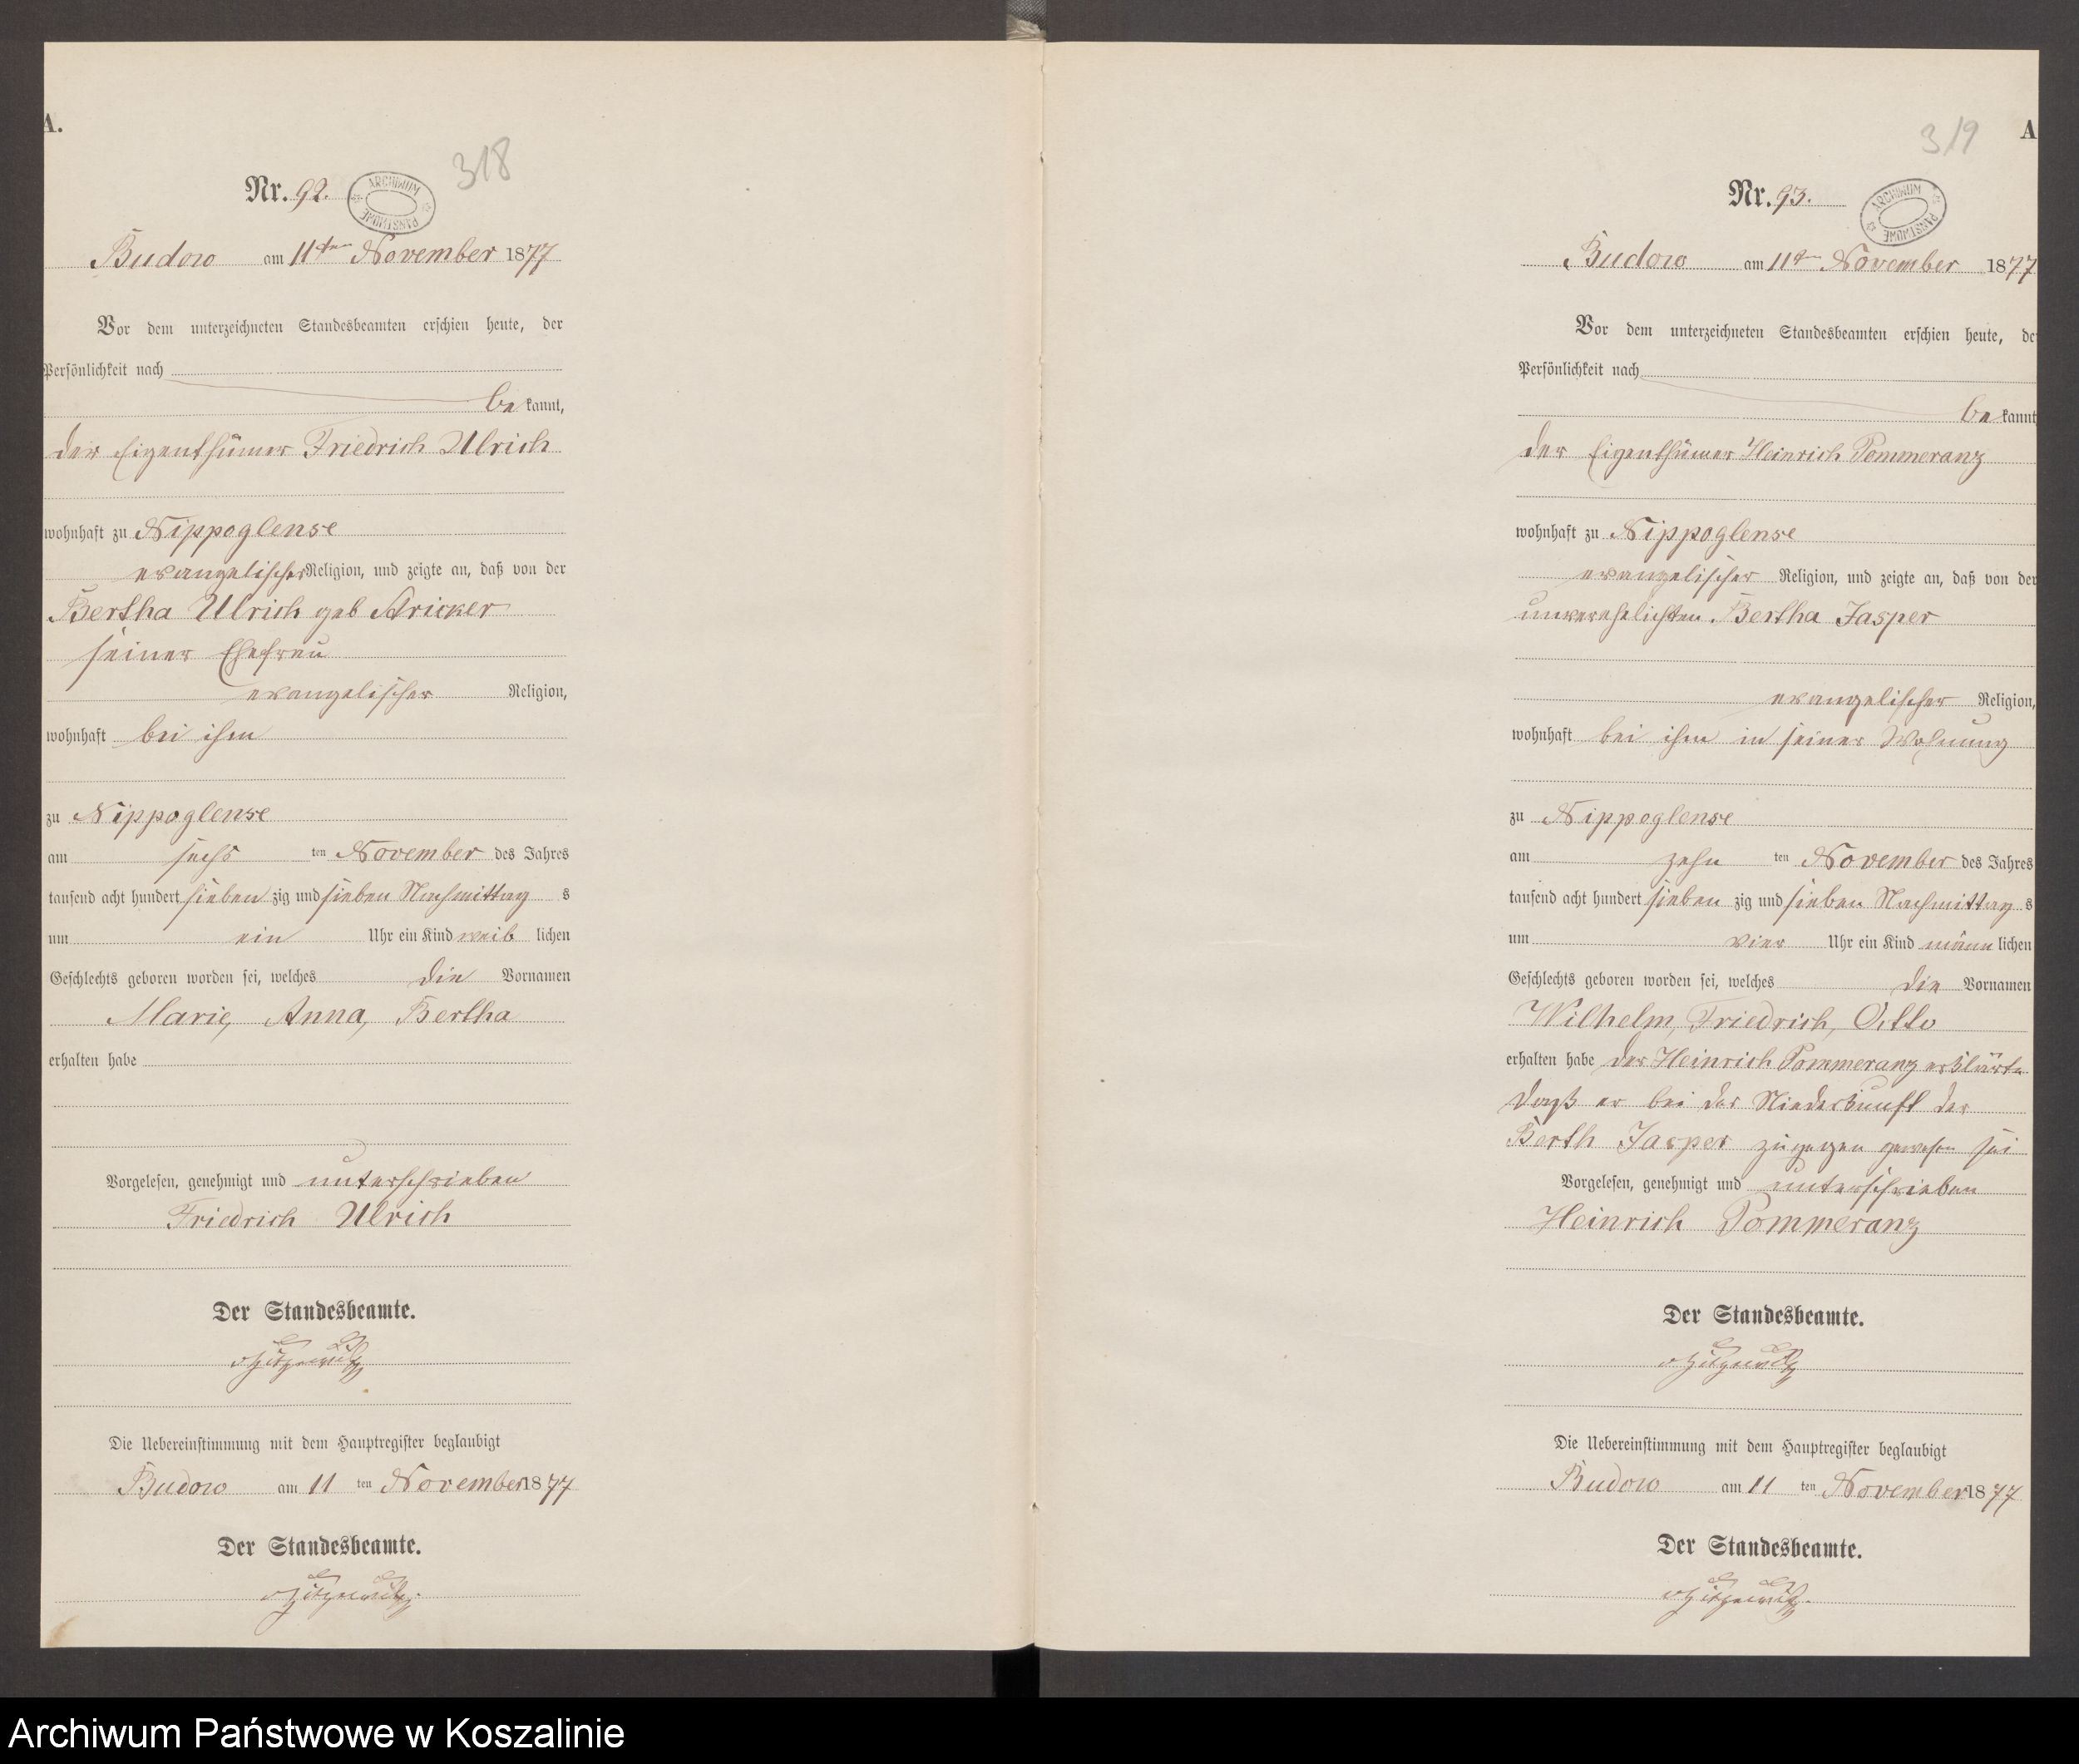 A.
318
Nr. 92.
ARCHIWUM PAŃSTWOWE
Budow am 11ten November 1877
Vor dem unterzeichneten Standesbeamten erschien heute, der
Persönlichkeit nach
be kannt,
der Eigenthümer Friedrich Ulrich
wohnhaft zu Nippoglense
evangelischer Religion, und zeigte an, daß von der
Bertha Ulrich geb
seiner Ehefrau
evangelischer Religion,
wohnhaft bei ihm
zu Nippoglense
am sechs ten November des Jahres
tausend acht hundert sieben zig und sieben Nachmittag s
um ein Uhr ein Kind weib lichen
Geschlechts geboren worden sei, welches die Vornamen
Marie, Anna, Bertha
erhalten habe
Vorgelesen, genehmigt und unterschrieben
Friedrich Ulrich
Der Standesbeamte.
Die Uebereinstimmung mit dem Hauptregister beglaubigt
Budow am 11 ten November 1877
Der Standesbeamte.
319
A
Nr. 93.
ARCHIWUM PAŃSTWOWE
Budow am 11ten November 1877
Vor dem unterzeichneten Standesbeamten erschien heute, de
Persönlichkeit nach
be kannt
der Eigenthümer Heinrich Pommeranz
wohnhaft zu Nippoglense
evangelischer Religion, und zeigte an, daß von der
unverehelichten Bertha Jasper
evangelischer Religion,
wohnhaft bei ihm in seiner Wohnung
zu Nippoglense
am zehn ten November des Jahres
tausend acht hundert sieben zig und sieben Nachmittag s
um vier Uhr ein Kind männ lichen
Geschlechts geboren worden sei, welches die Vornamen
Wilhelm, Friedrich, Otto
erhalten habe der Heinrich Pommeranz erklärte
daß er bei der Niederkunft der
Berth Jasper zugegen gewesen sei
Vorgelesen, genehmigt und unterschrieben
Heinrich Pommeranz
Der Standesbeamte.
Die Uebereinstimmung mit dem Hauptregister beglaubigt
Budow am 11 ten November 1877
Der Standesbeamte.
Archiwum Państwowe w Koszalinie